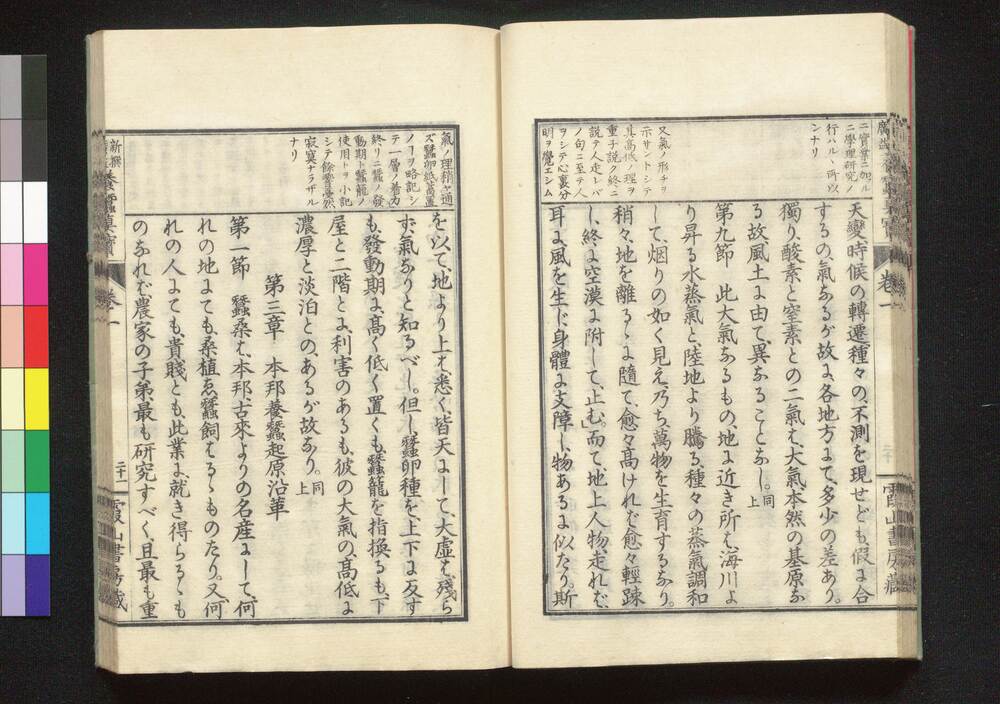 ニ實業ニ加ル
ニ學理研究ノ
行ハルヽ所以
ンナリ
又氣ノ形チヲ
示サントシテ
其高低ノ理ヲ
重子説ク終ニ
説テ人走レバ
ノ句ニ至テ人
ヲシテ心裏分
明ヲ覺エシム
天變時候の轉遷種々の、不測を現せども、假に合
するの、氣なるが故に、各地方にて、多少の差あり。
獨り酸素と窒素との二氣は、大氣本然の基原な
る故風土に由て、異なることなし。同上
第九節　此大氣なるもの、地に近き所は、海川よ
り昇る水蒸氣と、陸地より騰る種々の蒸氣調和
して、烟りの如く見え、乃ち萬物を生育するなり。
稍々地を離るゝに隨て、愈々高けれバ、愈々輕踈
し、終に空漠に附して、止む。而て、地上人物、走れバ、
耳に風を生じ、身體に支障し、物あるに似たり。斯
卷一
霞山書房藏
氣ノ理稍之通
ズ蠶卵紙萬置
ノヿヲ略記シ
テ一層ノ着力
終リニ蠶ノ發
動期ト蠶籠ノ
使用トヲ小記
シテ餘響曼然
寂寞ナラザル
ナリ
を以て、地より上は、悉く、皆天にして、大虛は、殘ら
ず、氣なりと知るべし。但し蠶卵種を、上下に反す
も、發動期に、高く低く置くも、蠶籠を指換るも、下
屋と二階とに、利害のあるも、彼の大氣の、高低に
濃厚と淡泊との、あるが故なり。同上
第三章　本邦養蠶起原沿革
第一節　蠶桑は、本邦、古來よりの名産にして、何
れの地にても、桑植ゑ蠶飼はるゝものたり。又、何
れの人にても、貴賤とも、此業に、就き得らるゝも
のなれバ、農家の子弟、最も研究すべく、且最も重
新撰
卷一
二十一
霞山書房藏